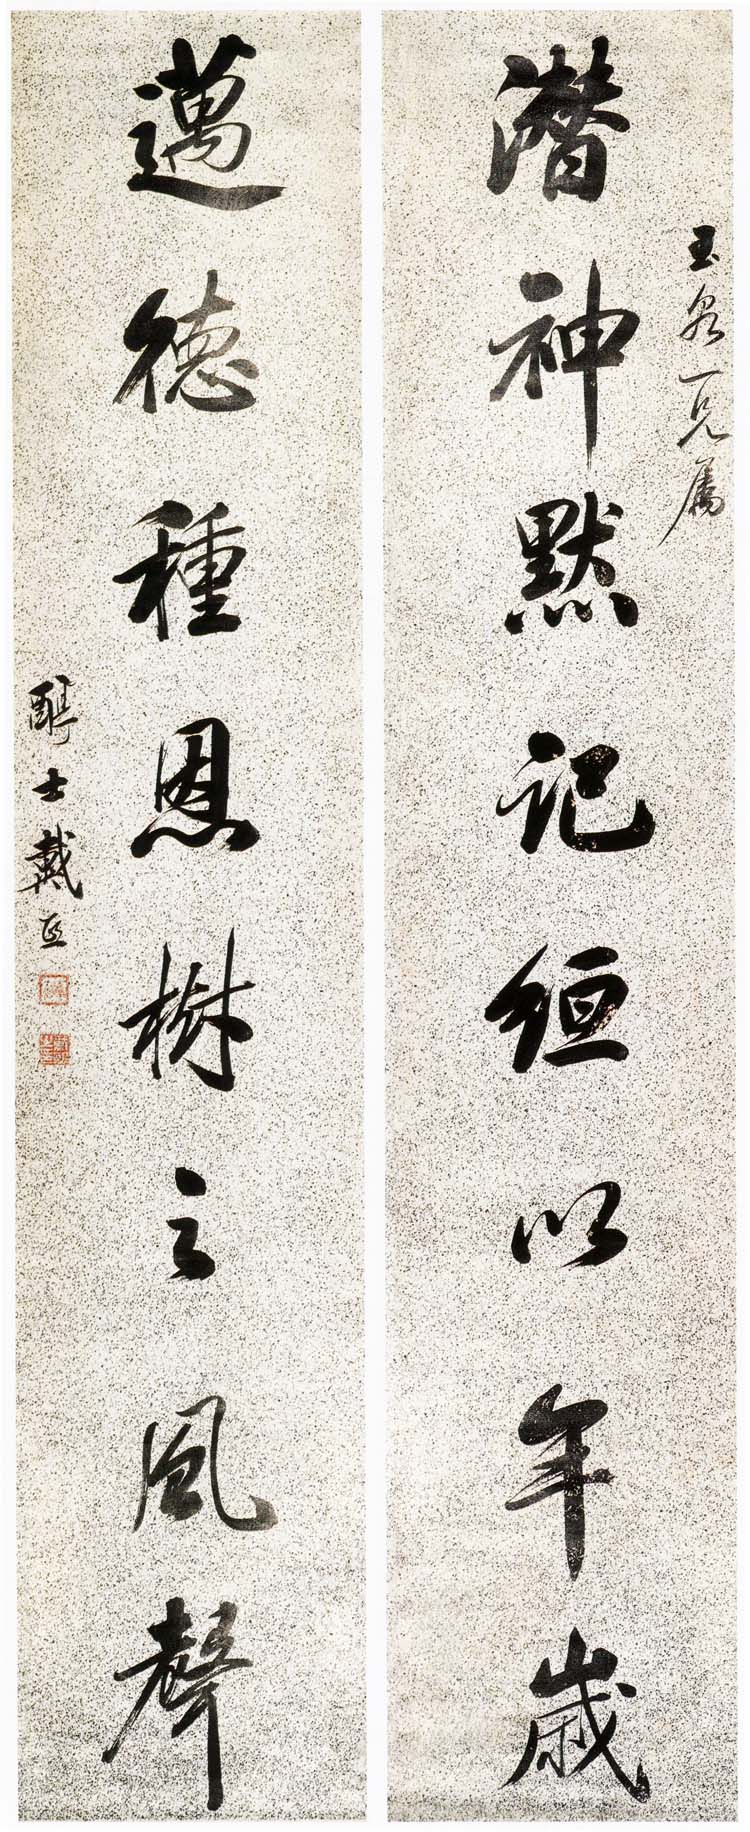 潛神默記絙以年歲
玉泉一兄屬
邁德種恩樹之風聲
醇士戴熙